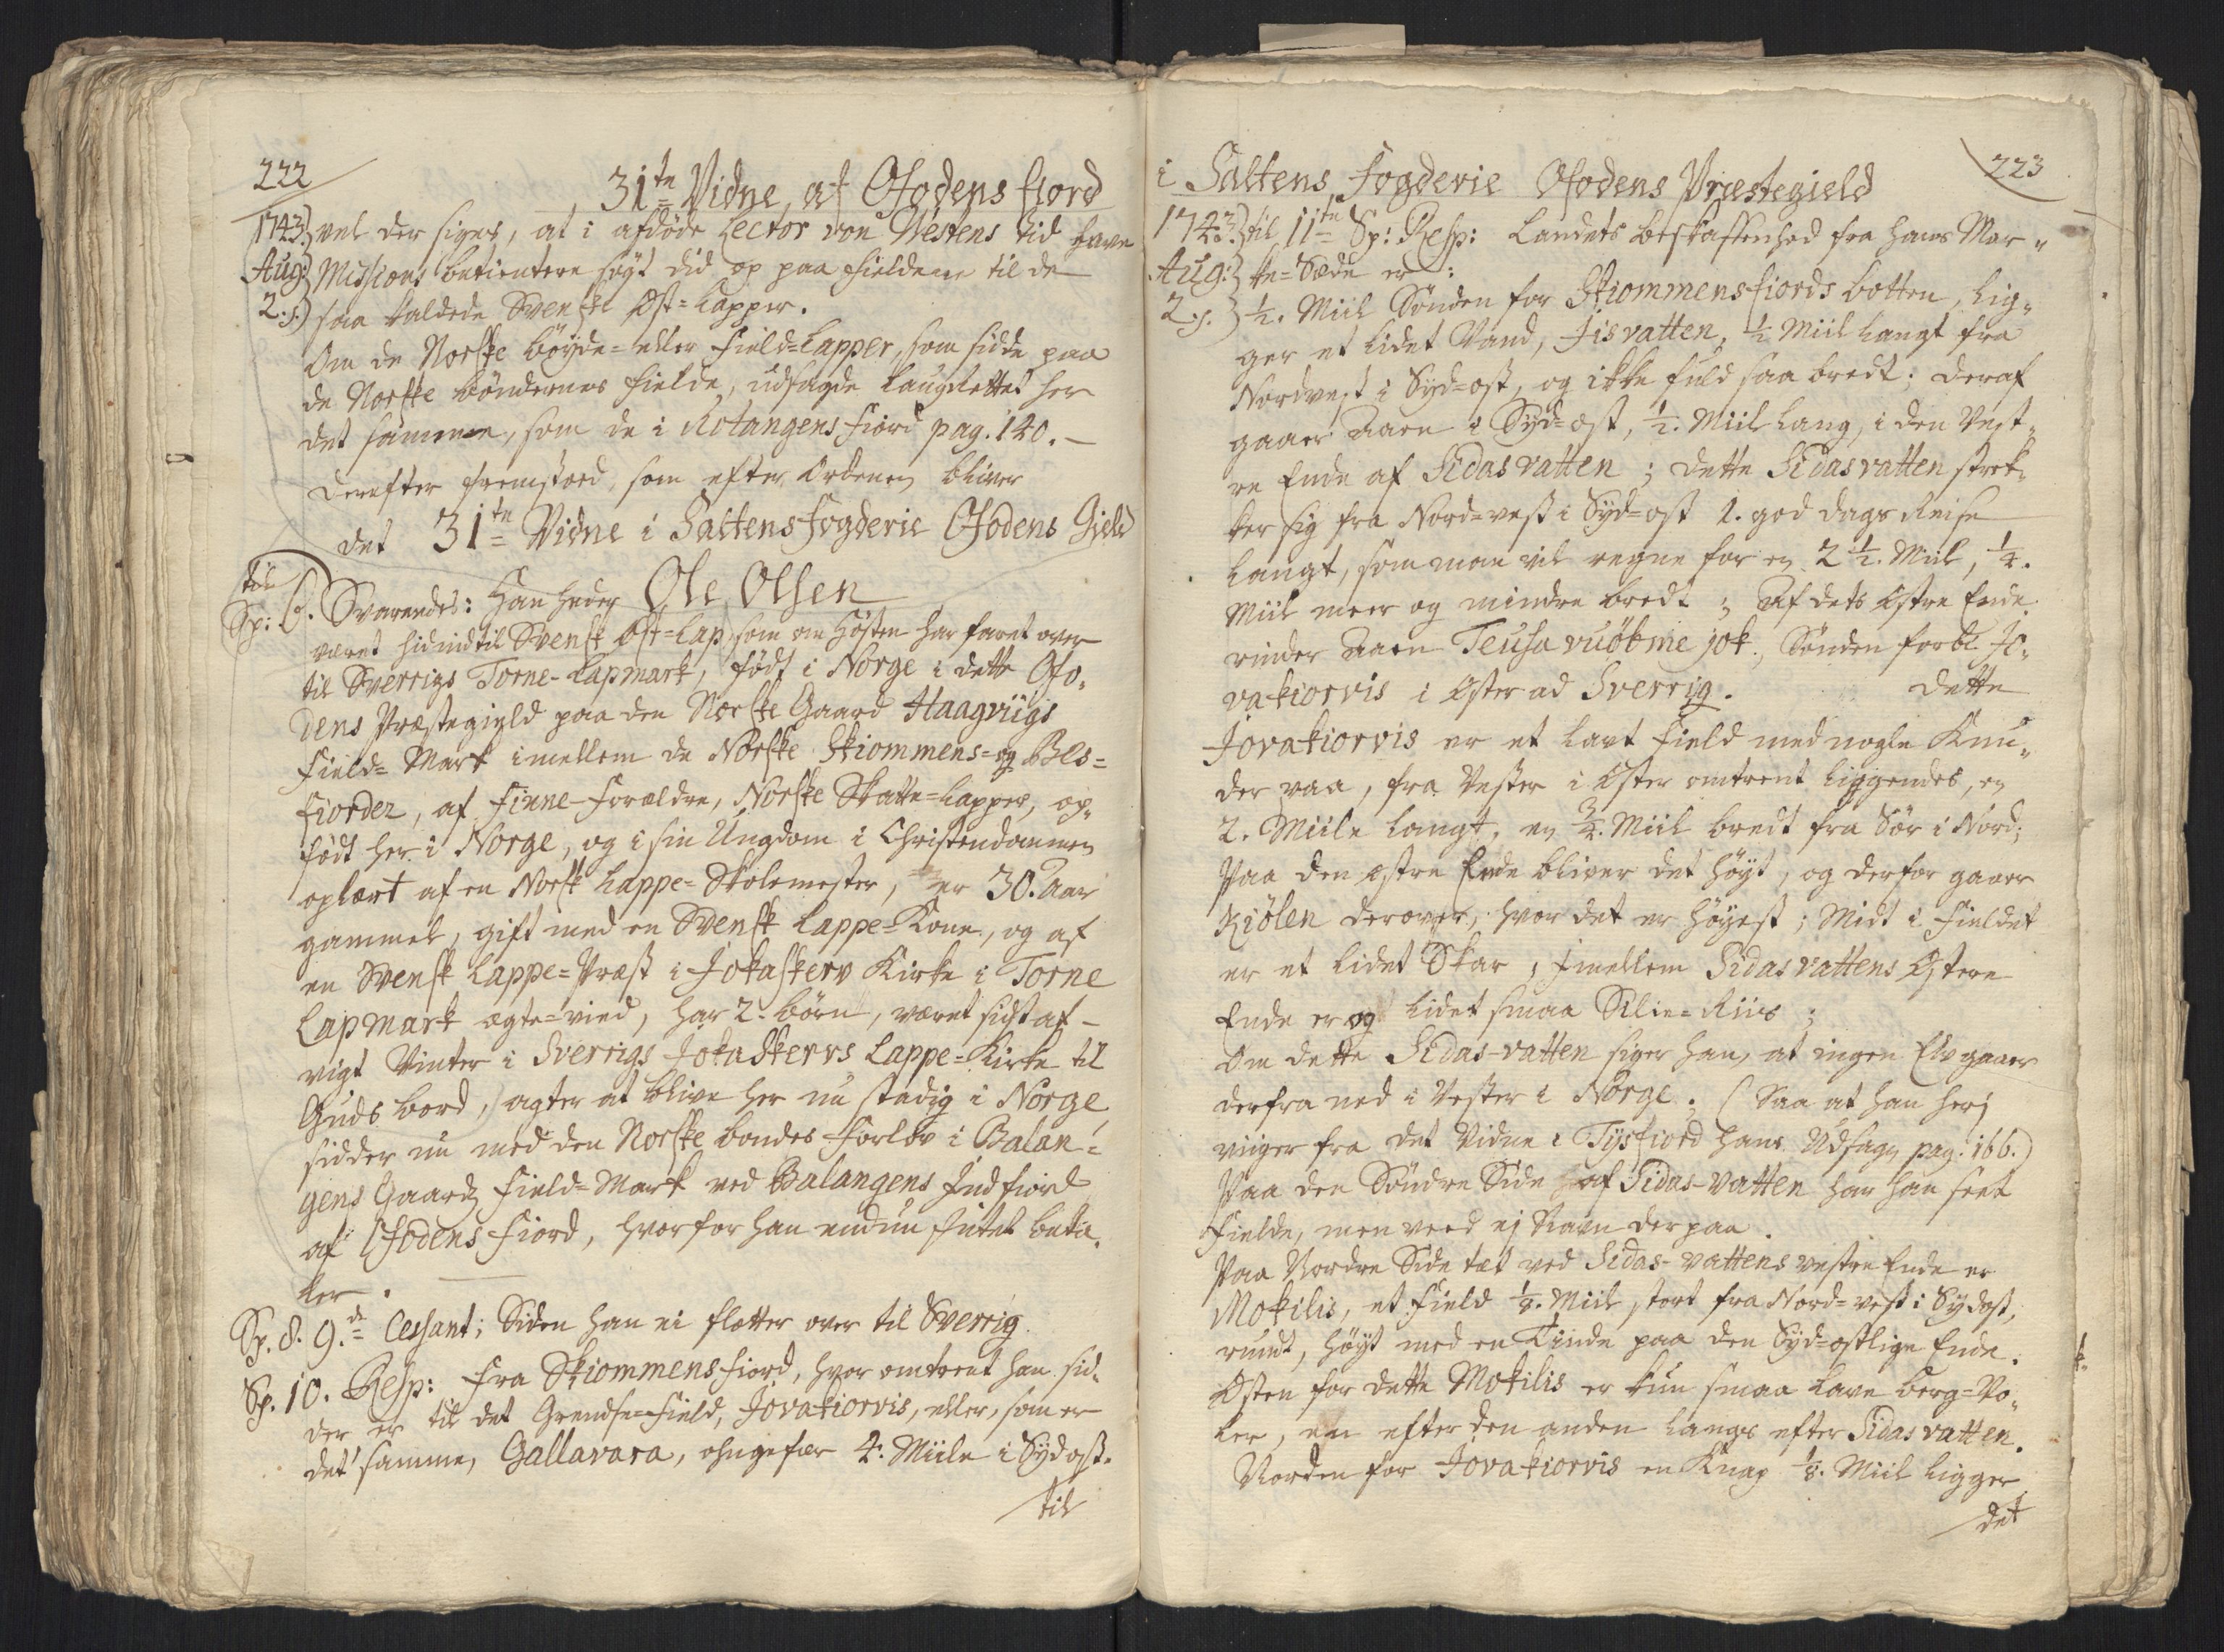 222
31te Vidne, af Ofodens fiord
1743. vel der siges, at i afdöde Lector von Westens tid have
Aug: Missions betientere søgt did op paa fieldene til de
2. s. saa kaldede Svenske Øst=Lapper.
Om de Norske böyde= eller Field=Lapper, som sidde paa
de Norske böndernes fielde, udsagde Laugrettet her
det samme, som de i Rotangens fiord pag. 140. –
derefter fremstoed, som efter Ordenen bliver
det 31te Vidne i Saltens fogderie Ofodens Gield
til
Sp: 6. Svarendes: Han heder Ole Olsen
været hidindtil Svensk Øst=Lap, som om Hösten har faret over
til Sverrigs Torne-Lapmark, födt i Norge i dette Ofo„
dens Præstegield paa den Norske Gaard Haagviigs
Field=Mark imellem de Norske Skiommens= og Beis=
fiorder, af Finne-Forældre, Norske Skatte=Lapper, op„
födt her i Norge, og i sin Ungdom i Christendommen
oplært af en Norsk Lappe=Skolemester, er 30. Aar
gammel, gift med en Svensk Lappe=Kone, og af
en Svensk Lappe=Præst i Jokaskerv Kirke i Torne
Lapmark ægte=vied, har 2. börn, været sidst af–
vigt Vinter i Sverrigs Jokaskervs Lappe=Kirke til
Guds bord, agter at blive her nu stadig i Norge,
sidder nu med den Norske bondes Forlov i Balan=
gens Gaards Field=Mark ved Balangens Indfiord
af Ofodens Fiord, hvorfor han endnu intet beta„
ler.
Sp. 8. 9.de Cessant; Siden han ei flætter over til Sverrig.
Sp. 10. Resp: Fra Skiommens fiord, hvor omtrent han sid„
der er til det Grendse=Field, Jovakiorvis, eller, som er
det samme, Gallavara, ohngefær 4. Miile i Sydost.
til
i Saltens Fogderie Ofodens Præstegield 223
1743. til 11te Sp: Resp: Landets beskaffenhed fra hans Mar„
Aug: ke=Sæde er:
2. s. ½. Miil Sönden for Skiommensfiords botten, lig„
ger et lidet Vand, Jisvatten, ½ Miil langt fra
Nordvest i Syd=ost, og ikke fuld saa bredt; deraf
gaaer Aaen i Syd=ost, ½. Miil lang, i den Vest„
re Ende af Sidasvatten; dette Sidasvatten strek„
ker sig fra Nord=vest i Syd=ost 1. god dags Reise
langt, som man vil regne for en 2 ½. Miil, ¼.
Miil meer og mindre bredt; Af dets Østre Ende
rinder Aaen Teusa vuöbme jok, Sönden forbi Jo„
vakiorvis i Øster ad Sverrig. dette
Jovakiorvis er et lavt Field med nogle Knu„
der paa, fra Vester i Øster omtrent liggendes, en
2. Miile langt, en ¾. Miil bredt fra Sör i Nord;
Paa den østre Ende bliver det höyt, og derfor gaaer
Kiölen derover, hvor det er höyest; Midt i Fieldet
er et lidet Skar, imellem Sidasvattens Østere
Ende er og lidet smaa Silie=Riis;
Om dette Sidas-vatten siger han, at ingen Elv gaaer
derfra ned i Vester i Norge. (Saa at han herj
viiger fra det Vidne i Tysfiord hans Udsagn pag: 166.)
Paa den Söndre Side af Sidas-vatten har han seet
Fielde, men veed ej Navn derpaa.
Paa Nordre Side tæt ved Sidas-vattens vestre Ende er
Mokilis, et Field ⅛. Miil stort fra Nord=vest i Sydost,
rundt, höyt med en Tinde paa den Syd=ostlige Ende.
Østen for dette Mokilis er kun smaa lave berg=Ko„
ler, en efter den anden langs efter Sidasvatten.
Norden for Jovakiorvis en Knap ⅛. Miil ligger
det